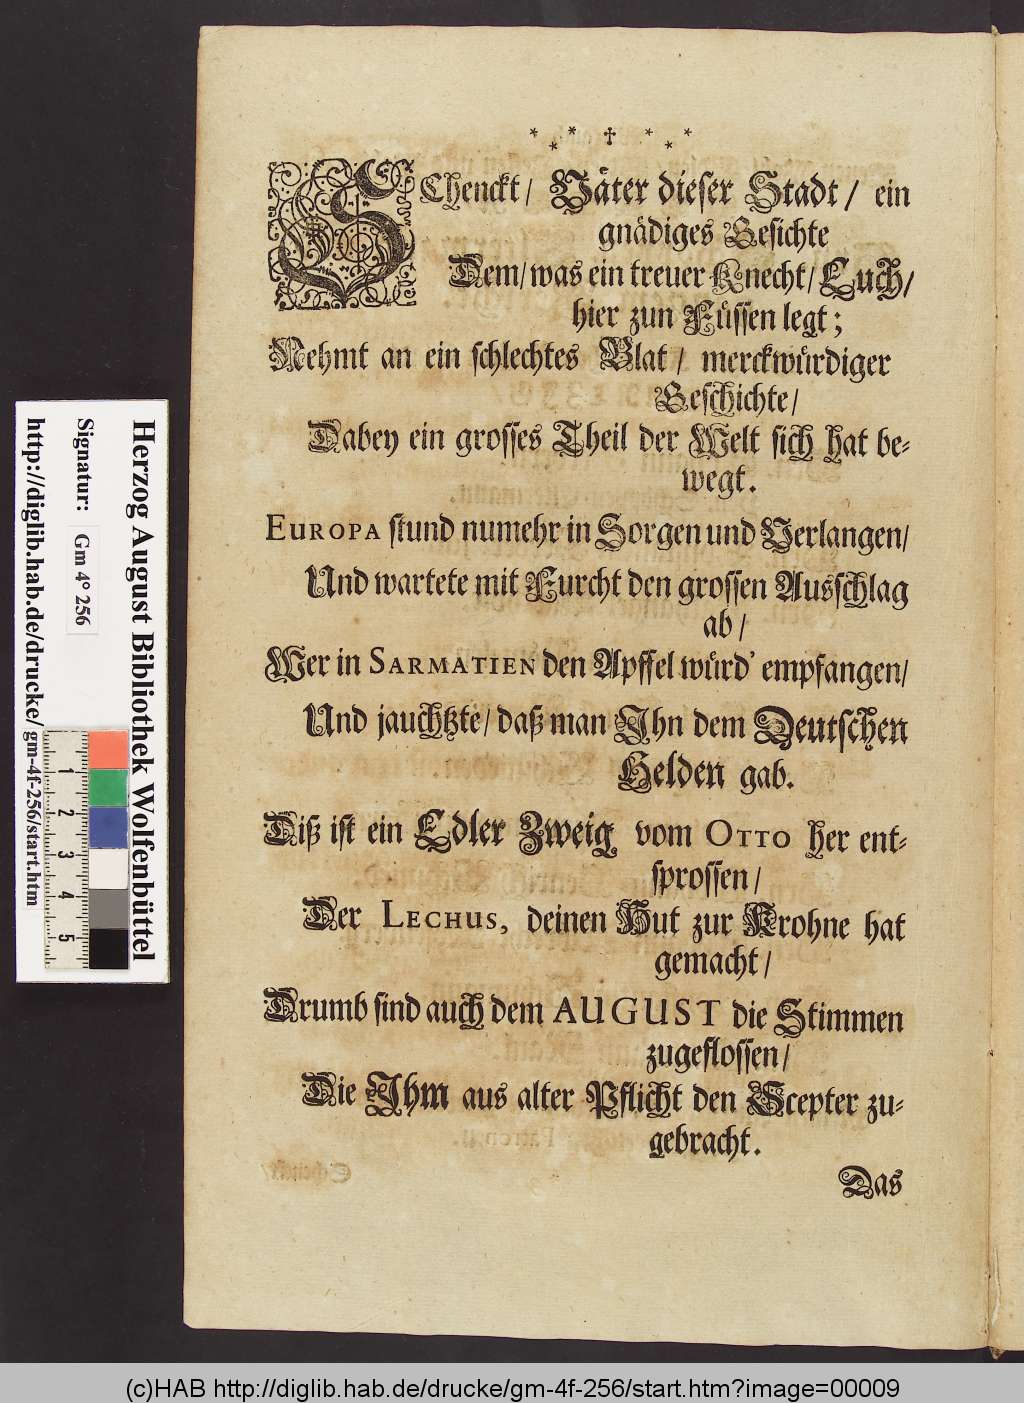 * * * ✢ * * *
SChenckt/ Väter dieser Stadt/ ein
gnädiges Gesichte
Dem/ was ein treuer Knecht/ Euch/
hier zun Füssen legt;
Nehmt an ein schlechtes Blat/ merckwürdiger
Geschichte/
Dabey ein grosses Theil der Welt sich hat be-
wegt.
EUROPA stund numehr in Sorgen und Verlangen/
Und wartete mit Furcht den grossen Ausschlag
ab/
Wer in SARMATIEN den Apffel würd' empfangen/
Und jauchtzte/ daß man Ihn dem Deutschen
Helden gab.
Diß ist ein Edler Zweig vom OTTO her ent-
sprossen/
Der LECHUS, deinen Hut zur Krohne hat
gemacht/
Drumb sind auch dem AUGUST die Stimmen
zugeflossen/
Die Ihm aus alter Pflicht den Scepter zu-
gebracht.
Das
Herzog August Bibliothek Wolfenbüttel
Signatur: Gm 4° 256
http://diglib.hab.de/drucke/gm-4f-256/start.htm
1
2
3
4
5
(c)HAB http://diglib.hab.de/drucke/gm-4f-256/start.htm?image=00009